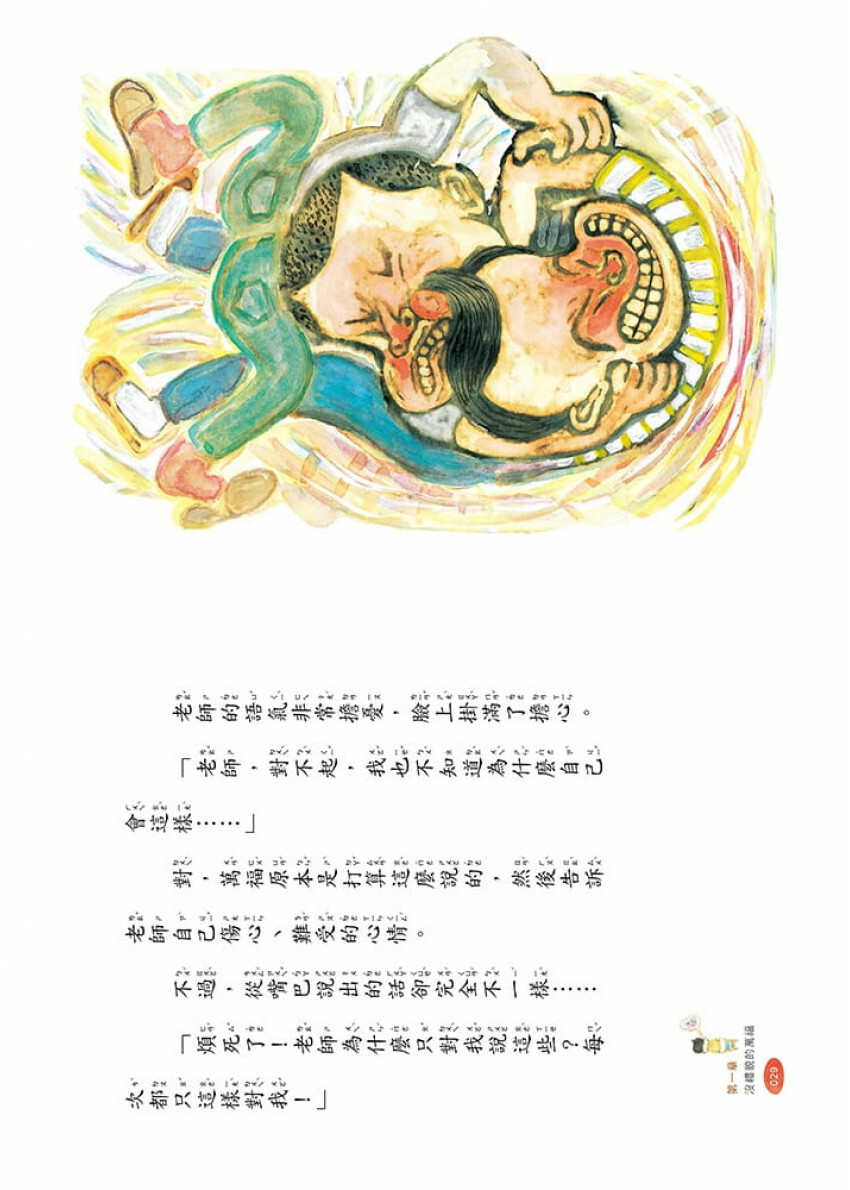 老師的語氣非常擔憂，臉上掛滿了擔心。
「老師，對不起，我也不知道為什麼自己
會這樣……」
對，萬福原本是打算這麼說的，然後告訴
老師自己傷心、難受的心情。
不過，從嘴巴說出的話卻完全不一樣……
「煩死了！老師為什麼只對我說這些？每
次都只這樣對我！」
第一章
沒禮貌的萬福
029